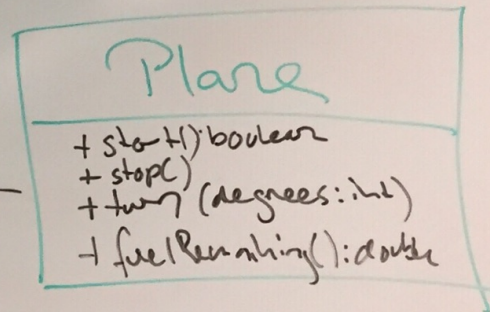 Plane
+ start():boolean
+ stop()
+ turn (degrees:int)
+ fuelRemaining():double